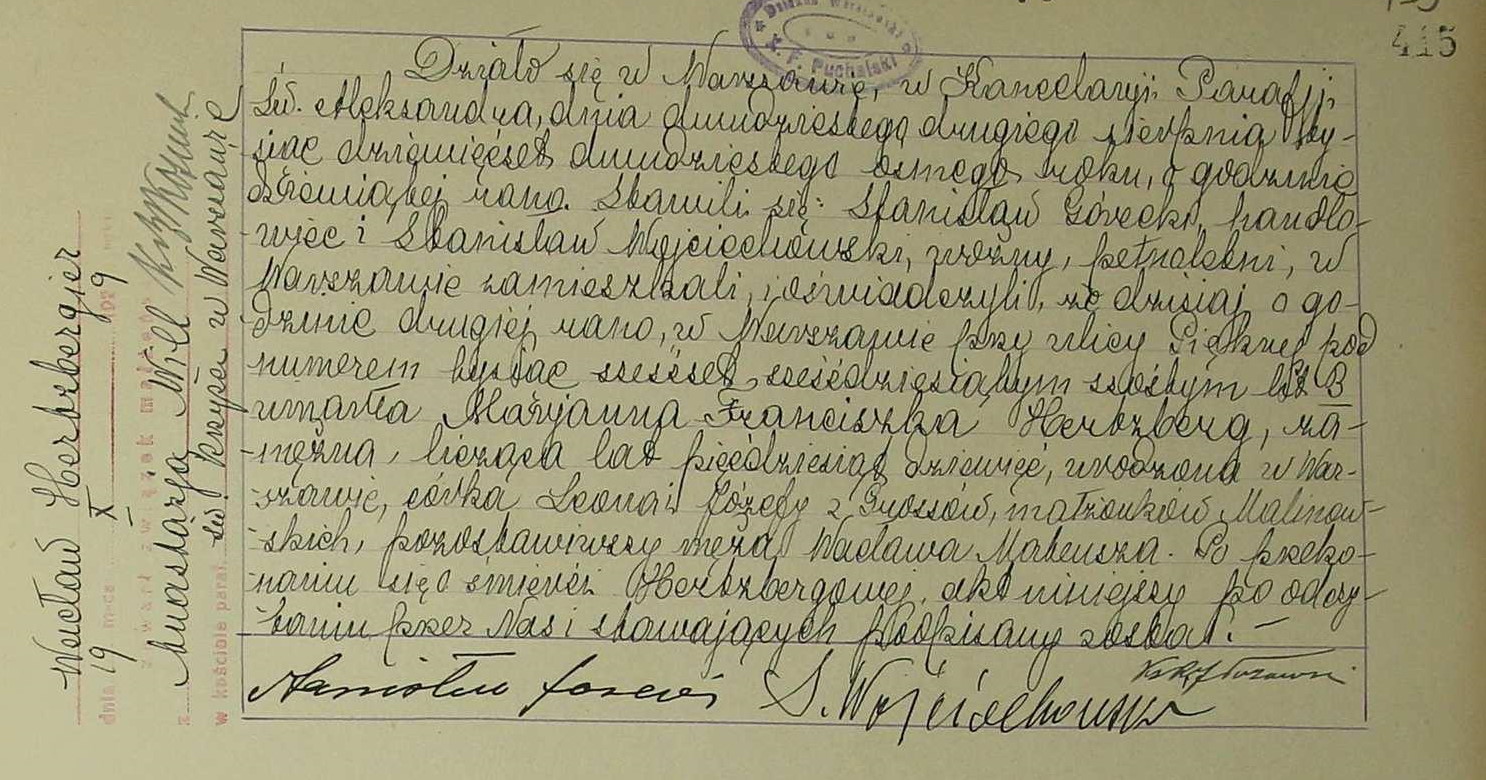 415
Działo się w Warszawie, w Kancelaryji Parafji
św. Aleksandra, dnia dwudziestego drugiego sierpnia ty-
siąc dziewięćset dwudziestego ósmego roku, o godzinie
dziewiątej rano. Stawili się: Stanisław Górecki, handlo-
wiec i Stanisław Wojciechowski, woźny, pełnoletni, w
Warszawie zamieszkali, i oświadczyli, że dzisiaj o go-
dzinie drugiej rano, w Warszawie przy ulicy Pięknej pod
numerem tysiąc sześćset sześćdziesiątym szóstym lit B
umarła Marjanna Franciszka Hertzberg, za-
mężna, licząca lat pięćdziesiąt dziewięć, urodzona w War-
szawie, córka Leona i Józefy z Grossów, małżonków Malinow-
skich, pozostawiwszy męża Wacława Mateusza. Po przeko-
naniu się o śmierci Hertzbergowej, akt niniejszy po odczy-
taniu przez Nas i stawających podpisany został. –
S. Wojciechowski
Wacław Hertzbergier
dnia 19 m-ca X 19 9
zawarł związek małżeń
z Anastazją Will
w kościele paraf. św. Krzyża w Warszawie
F. Puchalski